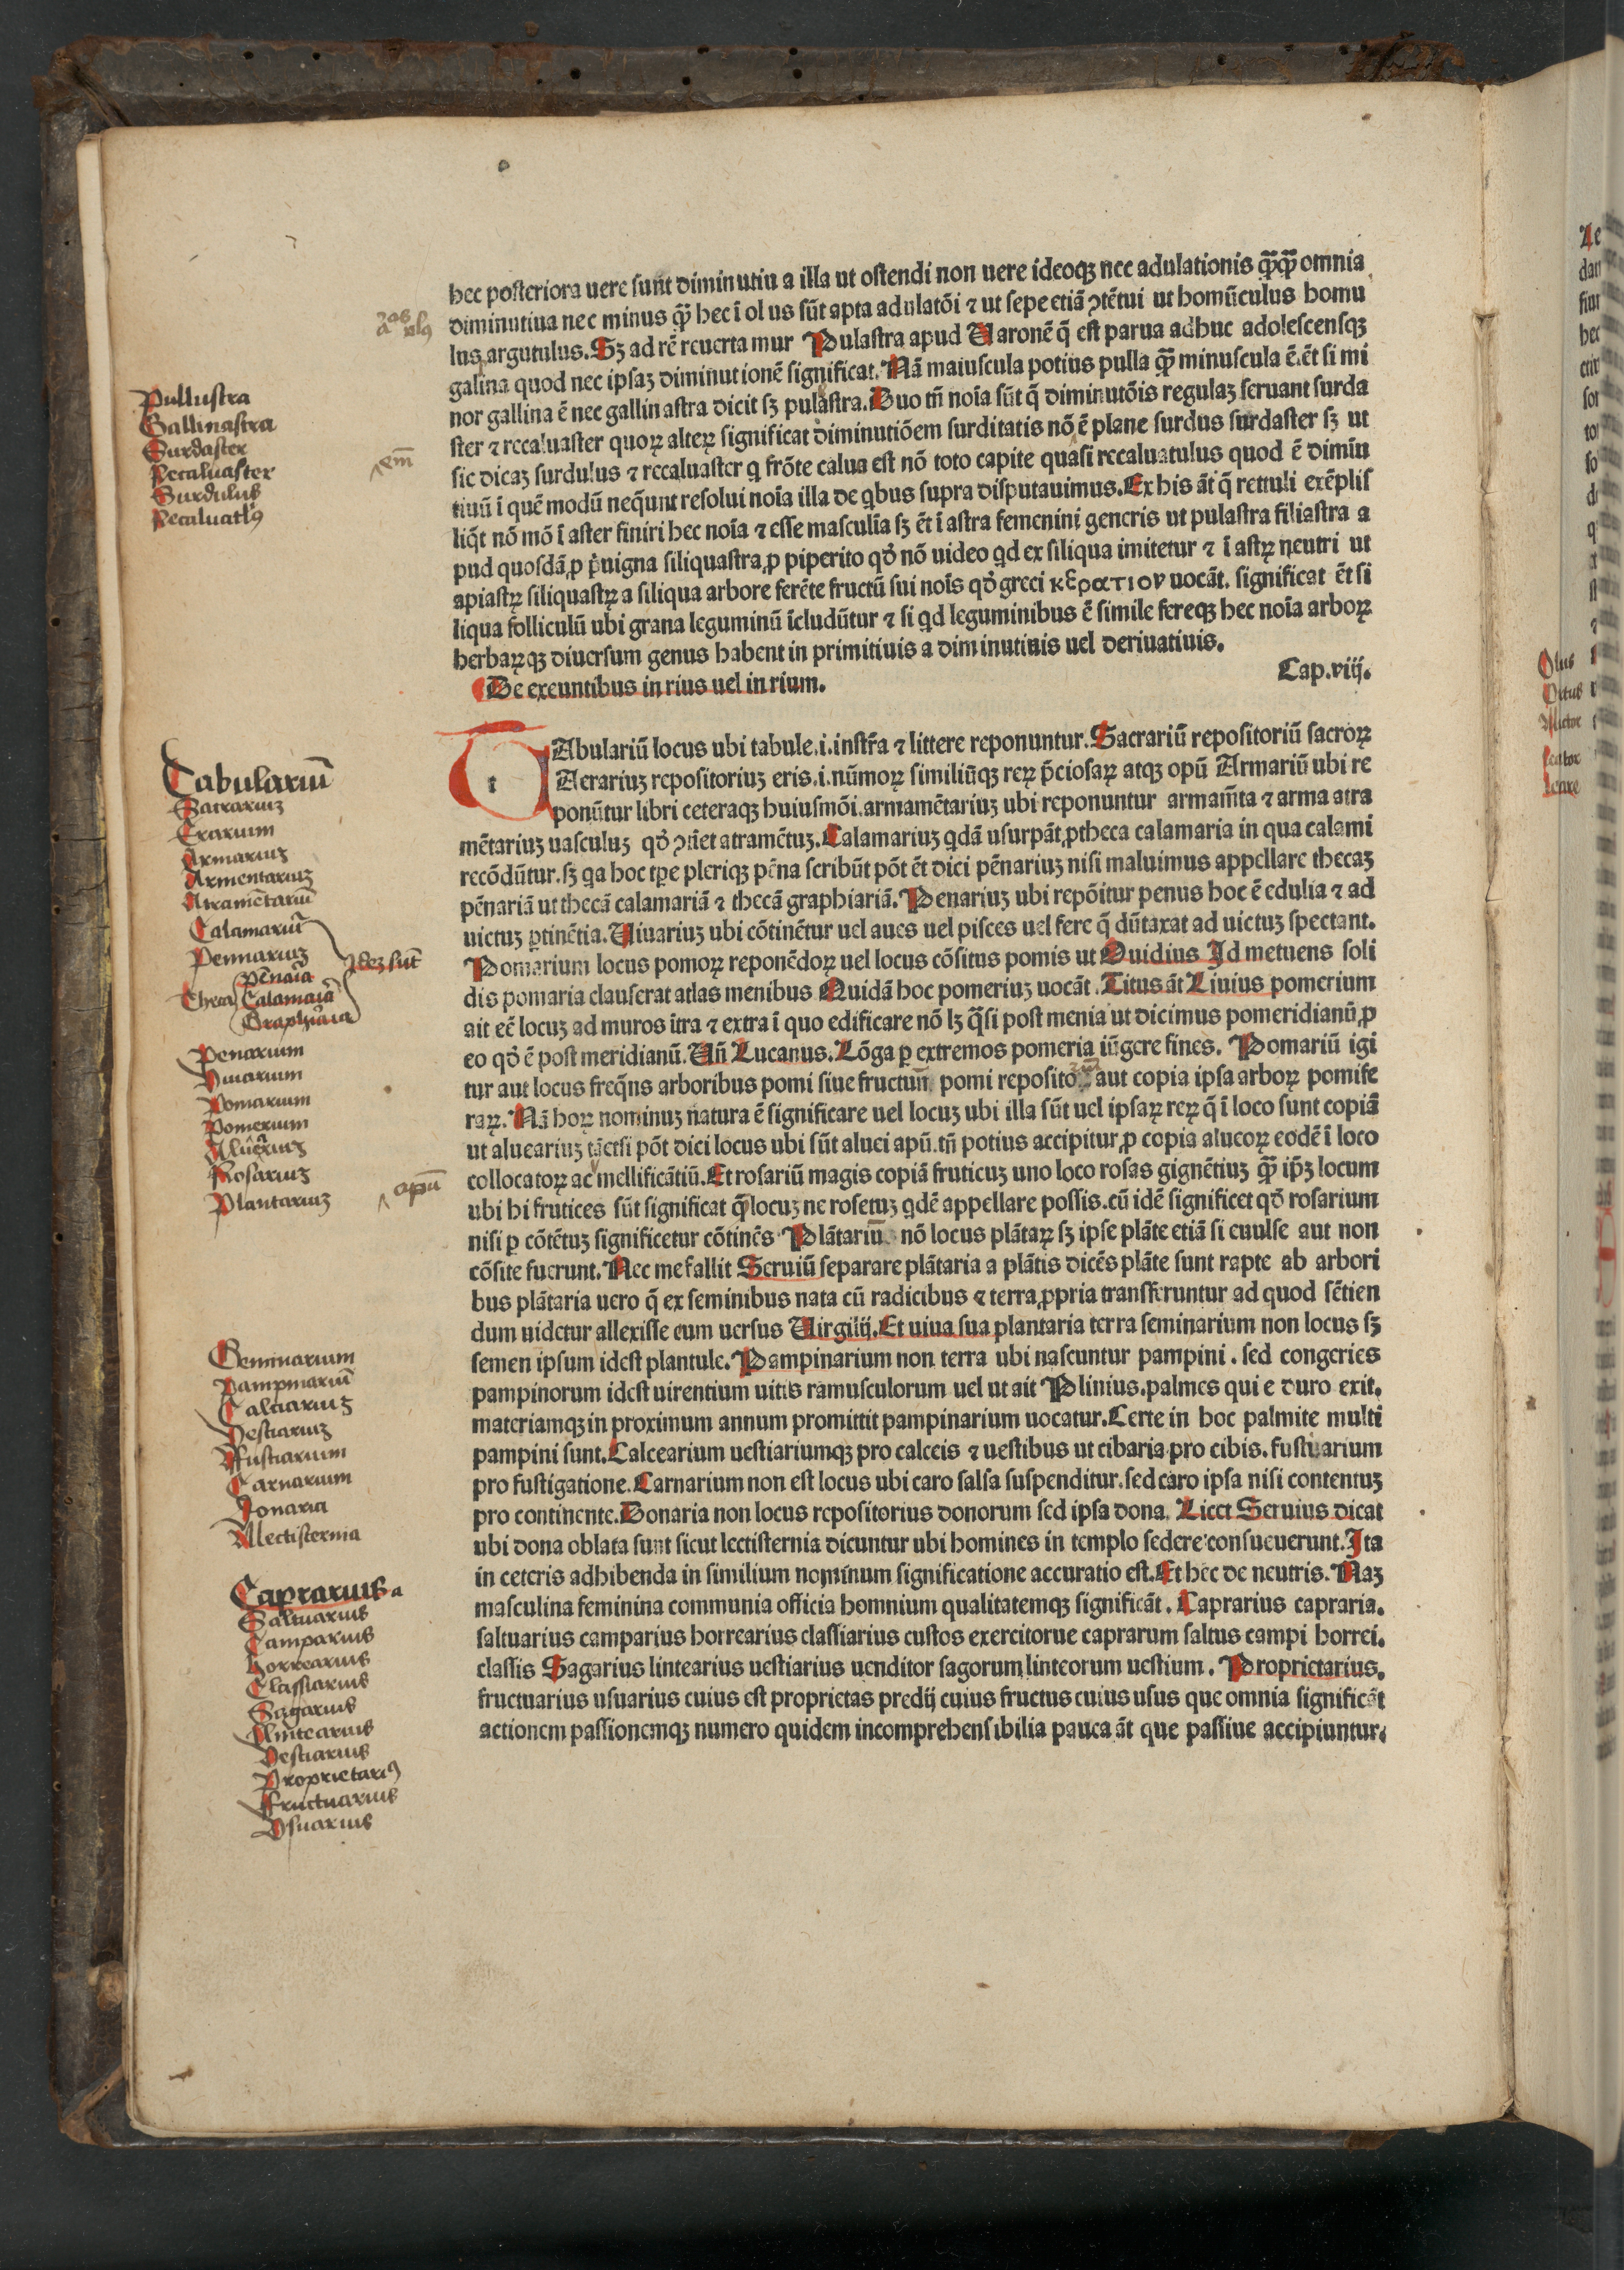 hec posteriora uere sunt diminutiu a illa ut ostendi non uere ideoqꝫ nec adulationis q̄ꝫq̄ꝫ omnia
diminutiua nec minus q̄ꝫ hec ī ol us sūt apta adulatōi ⁊ ut sepe etiā ꝯtētui ut homūculus homu
lus argutulus. Sꝫ ad rē reuerta mur Pulastra apud Uaronē q̄ est parua adhuc adolescensqꝫ
galina quod nec ipsaꝫ diminut ionē significat. Nā maiuscula potius pulla q̄ꝫ minuscula ē. ēt si mi
nor gallina ē nec gallin astra dicit sꝫ pulastra. Duo tn̄ noīa sūt q̄ diminutōis regulaꝫ seruant surda
ster ⁊ recaluaster quoꝝ alteꝝ significat diminutiōem surditatis nō ē plane surdus surdaster sꝫ ut
sic dicaꝫ surdulus ⁊ recaluaster q frōte calua est nō toto capite quasi recaluatulus quod ē dimīn
tiuū ī quē modū neq̄unt resolui noīa illa de qbus supra disputauimus. Ex his āt q̄ rettuli exēplis
liq̄t nō mō ī aster finiri hec noīa ⁊ esse masculīa sꝫ ēt ī astra femenini generis ut pulastra filiastra a
pud quosdā ꝓ p̄uigna siliquastra ꝓ piperito qđ nō uideo qd ex siliqua imitetur ⁊ ī astꝝ neutri ut
apiastꝝ siliquastꝝ a siliqua arbore ferēte fructū sui noīs qđ greci κερατιον uocāt. significat ēt si
liqua folliculū ubi grana leguminū īcludūtur ⁊ si qd leguminibus ē simile fereqꝫ hec noīa arboꝝ
herbaꝝqꝫ diuersum genus habent in primitiuis a diminutiuis uel deriuatiuis.
De exeuntibus in rius uel in rium. Cap.viij.
TAbulariū locus ubi tabule .i. instr̄a ⁊ littere reponuntur. Sacrariū repositoriū sacroꝝ
Aerariuꝫ repositoriuꝫ eris .i. nūmoꝝ similiūqꝫ reꝝ p̄ciosaꝝ atqꝫ opū Armariū ubi re
ponūtur libri ceteraqꝫ huiusmōi. armamētariuꝫ ubi reponuntur armam̄ta ⁊ arma atra
mētariuꝫ uasculuꝫ qđ ꝯtīet atramētuꝫ. Calamariuꝫ qdā usurpāt ꝓ theca calamaria in qua calami
recōdūtur. sꝫ qa hoc tꝑe pleriqꝫ pēna scribūt pōt ēt dici pēnariuꝫ nisi maluimus appellare thecaꝫ
pēnariā ut thecā calamariā ⁊ thecā graphiariā. Penariuꝫ ubi repōitur penus hoc ē edulia ⁊ ad
uictuꝫ ꝑtinētia. Uiuariuꝫ ubi cōtinētur uel aues uel pisces uel fere q̄ dūtaxat ad uictuꝫ spectant.
Pomarium locus pomoꝝ reponēdoꝝ uel locus cōsitus pomis ut Ouidius Id metuens soli
dis pomaria clauserat atlas menibus Quidā hoc pomeriuꝫ uocāt. Titus āt Liuius pomerium
ait eē locuꝫ ad muros ītra ⁊ extra ī quo edificare nō lꝫ q̄si post menia ut dicimus pomeridianū ꝓ
eo qđ ē post meridianū. Un̄ Lucanus. Lōga ꝑ extremos pomeria iūgere fines. Pomariū igi
tur aut locus freq̄ns arboribus pomi siue fructuū pomi reposito aut copia ipsa arboꝝ pomife
raꝝ. Nā hoꝝ nominuꝫ natura ē significare uel locuꝫ ubi illa sūt uel ipsaꝝ reꝝ q̄ ī loco sunt copiā
ut aluearíuꝫ tāetsi pōt dici locus ubi sūt aluei apū. tn̄ potius accipitur ꝓ copia alueoꝝ eodē ī loco
collocatoꝝ ac mellificātiū. Et rosariū magis copiā fruticuꝫ uno loco rosas gignētiuꝫ q̄ꝫ ip̄ꝫ locum
ubi hi frutices sūt significat q̄ locuꝫ ne rosetuꝫ qdē appellare possis. cū idē significet qđ rosarium
nisi ꝑ cōtētuꝫ significetur cōtinēs Plātariū nō locus plātaꝝ sꝫ ipse plāte etiā si euulse aut non
cōsite fuerunt. Nec me fallit Seruiū separare plātaria a plātis dicēs plāte sunt rapte ab arbori
bus plātaria uero q̄ ex seminibus nata cū radicibus ⁊ terra ꝓpria transferuntur ad quod sētien
dum uidetur allexisse eum uersus Uirgilij. Et uiua sua plantaria terra seminarium non locus sꝫ
semen ipsum idest plantule. Pampinarium non terra ubi nascuntur pampini. sed congeries
pampinorum idest uirentium uitis ramusculorum uel ut ait Plinius. palmes qui e duro exit.
materiamqꝫ in proximum annum promittit pampinarium uocatur. Certe in hoc palmite multi
pampini sunt. Calcearium uestiariumqꝫ pro calceis ⁊ uestibus ut cibaria pro cibis. fustuarium
pro fustigatione. Carnarium non est locus ubi caro salsa suspenditur. sed caro ipsa nisi contentuꝫ
pro continente. Donaria non locus repositorius donorum sed ipsa dona. Licet Seruius dicat
ubi dona oblata sunt sicut lectisternia dicuntur ubi homines in templo sedere consueuerunt. Ita
in ceteris adhibenda in similium nominum significatione accuratio est. Et hec de neutris. Naꝫ
masculina feminina communia officia homnium qualitatemqꝫ significāt. Caprarius capraria.
saltuarius camparius horrearius classiarius custos exercitorue caprarum saltus campi horrei.
classis Sagarius lintearius uestiarius uenditor sagorum linteorum uestium. Proprietarius.
fructuarius usuarius cuius est proprietas predij cuius fructus cuius usus que omnia significāt
actionem passionemqꝫ numero quidem incomprehensibilia pauca āt que passiue accipiuntur.
Pullustra
Gallinastra
Surdaster
Recaluaster
Surdulus
Recaluatlꝰ
em̄
Tabulariū
Sacrariuꝫ
Erarium
Armariuꝫ
Armentariuꝫ
Atramētariū
Calamariū
Pennariuꝫ
Ideꝫ sūt
Theca
pēnaīa
Calamaīa
Graphiaīa
Penarium
Viuarium
Pomarium
Pomerium
Aluēriuꝫ
Rosariuꝫ
Plantariuꝫ
apū
Seminarium
Pampinariū
Calciariuꝫ
Vestiariuꝫ
Ffustiarium
Carnarium
Donaria
Llectisternia
Caprarius a
Saltuarius
Camparius
horrearius
Classiarius
Sagarius
Lintearius
Vestiarius
Proprietariꝰ
Ffructuarius
Vsuarius
Olus